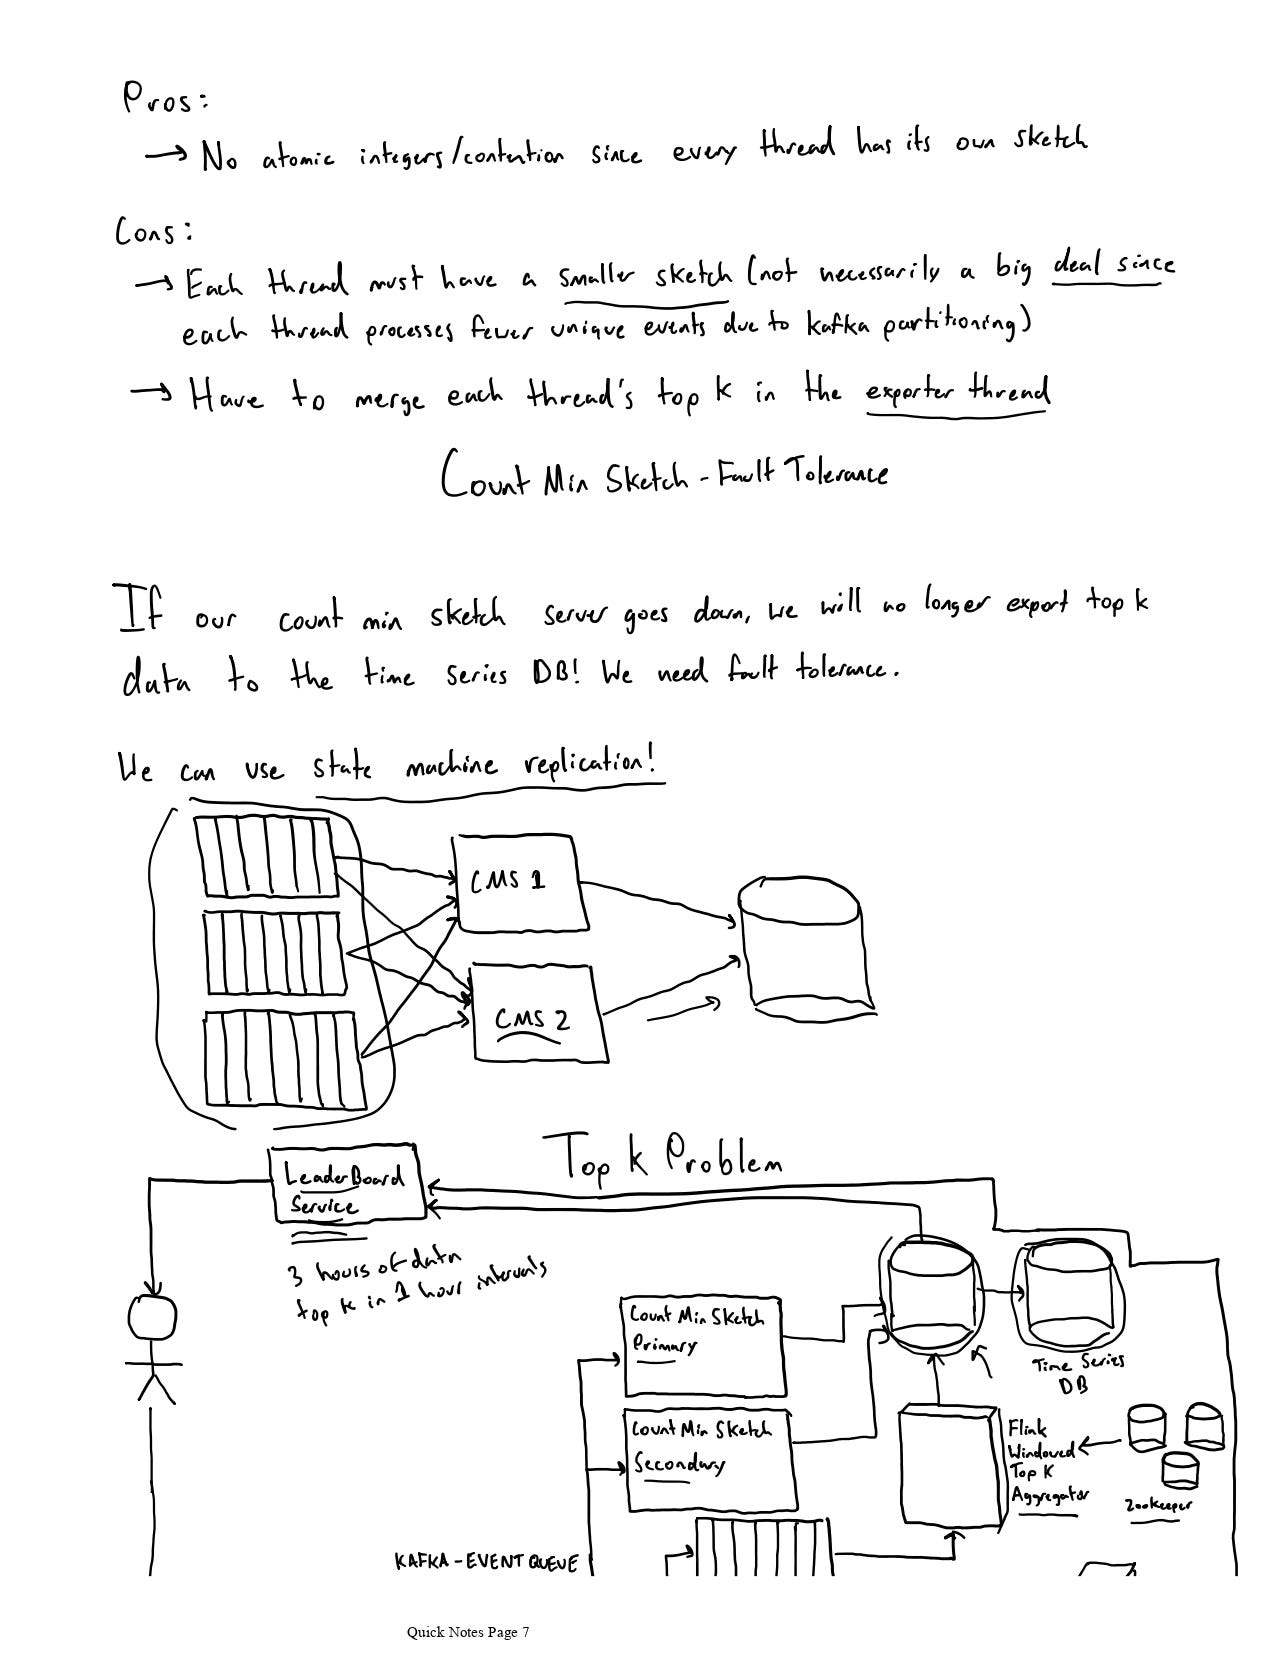 Pros:
→ No atomic integers/contention since every thread has its own sketch
Cons:
→ Each thread must have a smaller sketch (not necessarily a big deal since
each thread processes fewer unique events due to kafka partitioning)
→ Have to merge each thread's top k in the exporter thread
Count Min Sketch - Fault Tolerance
If our count min sketch server goes down, we will no longer export top k
data to the time series DB! We need fault tolerance.
We can use state machine replication!
CMS 1
CMS 2
Top K Problem
LeaderBoard
Service
3 hours of data
top k in 1 hour intervals
Count Min Sketch
Primary
Time Series
DB
Count Min Sketch
Secondary
Flink
Windowed
Top K
Aggregator
Zookeeper
KAFKA - EVENT QUEUE
Quick Notes Page 7